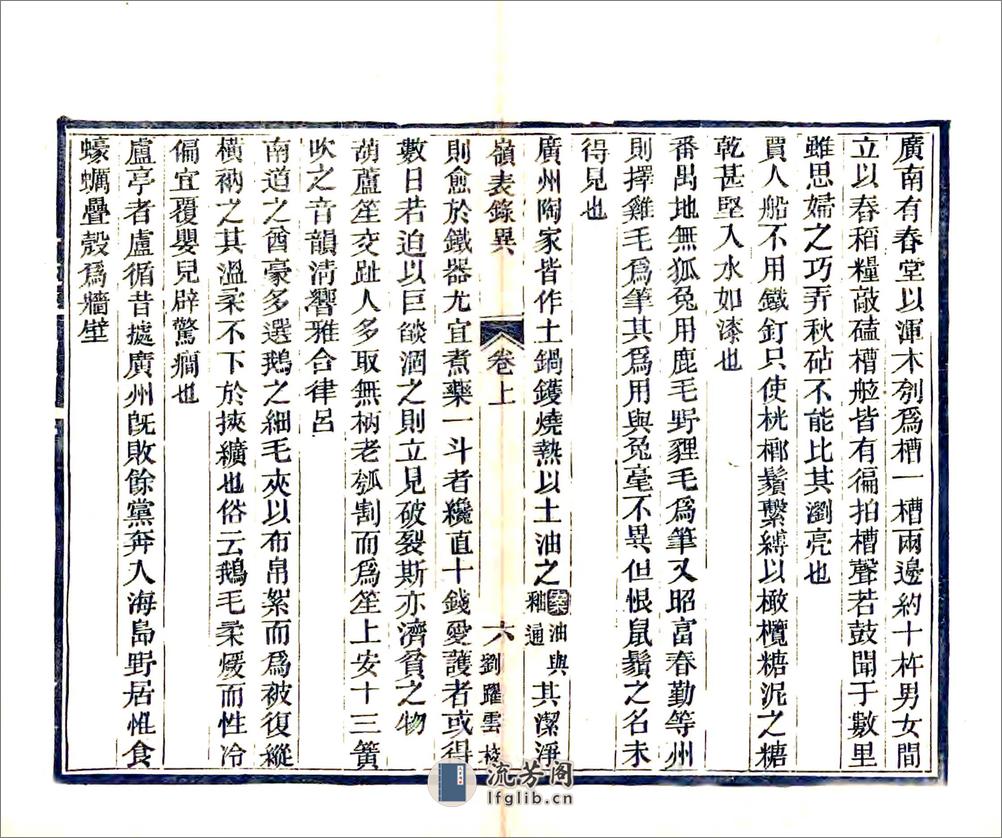 廣南有舂堂以渾木刳爲槽一槽兩邊約十杵男女間
立以舂稻糧敲磕槽舷皆有徧拍槽聲若鼓聞于數里
雖思婦之巧弄秋砧不能比其瀏亮也
買人船不用鐵釘只使桄榔鬚繫縛以橄欖糖泥之糖
乾甚堅入水如漆也
番禺地無狐兔用鹿毛野貍毛爲筆又昭富春勤等州
則擇雞毛爲筆其爲用與兔毫不異但恨鼠鬚之名未
得見也
廣州陶家皆作土鍋鑊燒熱以土油之案油與釉通其潔淨
嶺表錄異 卷上 六 劉躍雲校
則愈於鐵器尤宜煮藥一斗者纔直十錢愛護者或得
數日若迫以巨燄涸之則立見破裂斯亦濟貧之物
葫蘆笙交趾人多取無柄老瓠割而爲笙上安十三簧
吹之音韻淸響雅合律呂
南道之酋豪多選鵝之細毛夾以布帛絮而爲被復縱
橫衲之其溫柔不下於挾纊也俗云鵝毛柔煖而性冷
偏宜覆嬰兒辟驚癎也
盧亭者盧循昔據廣州旣敗餘黨奔入海島野居惟食
蠔蠣疊殼爲牆壁
流芳阁
lfglib.cn